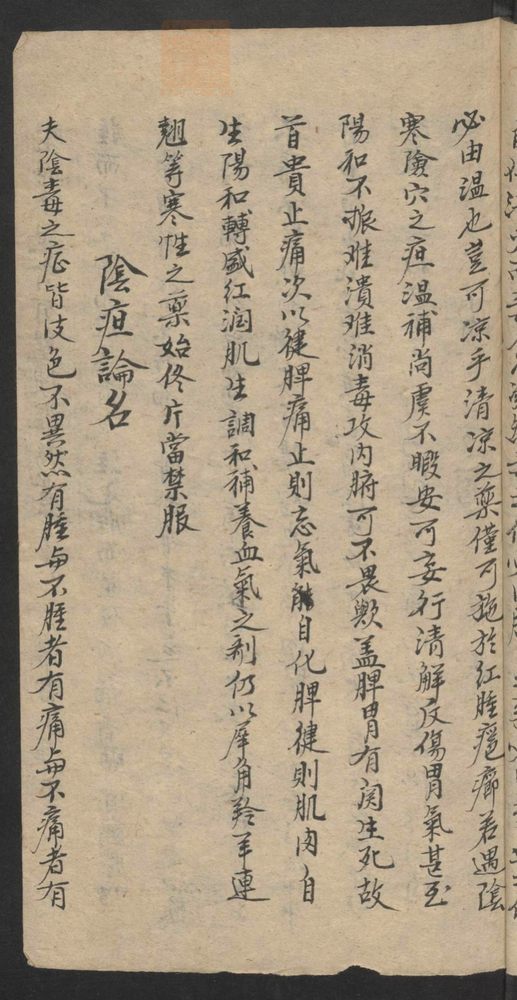 必由温也豈可凉乎清凉之藥僅可施於紅腫癰癤若遇陰
寒險穴之疽温補尚虞不暇安可妄行清解反傷胃氣甚至
陽和不振难潰难消毒攻內腑可不畏歟盖脾胃有関生死故
首貴止痛次以徤脾痛止則忘氣能自化脾徤則肌肉自
生陽和轉盛紅润肌生調和補養血氣之剂仍以犀角羚羊連
翹等寒性之藥始終片當禁服
陰疽論名
夫陰毒之症皆皮色不異然有腫与不腫者有痛与不痛者有